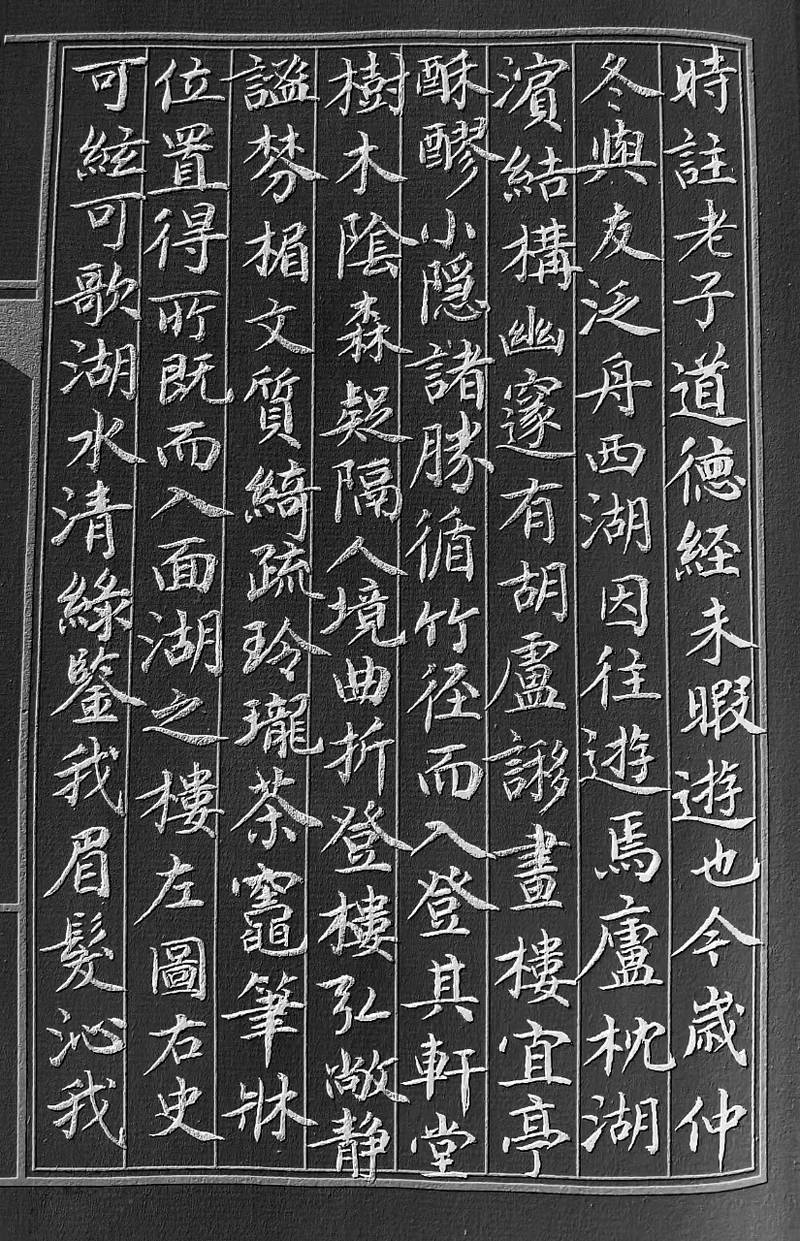 時註老子道德経未暇遊也今歳仲
冬與友泛舟西湖因往遊焉廬枕湖
濵結構幽邃有胡盧謻畫樓宜亭
酥醪小隠諸勝循竹径而入登其軒堂
樹木陰森疑隔人境曲折登樓弘敞静
謐棼楣文質綺疏玲瓏茶竈筆牀
位置得所既而入面湖之樓左圖右史
可絃可歌湖水清緑鑒我眉髮沁我